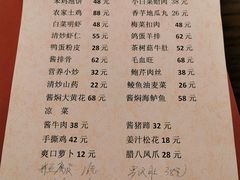 农家土鸡 88 元 香芋地瓜丸 26 元
白菜明虾 48 元 梅菜扣肉 48 元
清炒虾仁 55 元 鸽蛋羊排
鸭蛋粉皮 28 元 茶树菇牛肚
酱排骨 62 元 毛血旺 68 元
营养小炒 32 元 鲍芹肉丝 38 元
清炒山药 22 元 鲮鱼油麦菜 38 元
酱焖大黄花 68 元 酱焖海鲈鱼 58 元
凉 菜
酱牛肉 38 元 酱猪蹄 32 元
手撕鸡 42 元 姜汁松花 18 元
爽口萝卜 12 元 腊八风爪 28 元